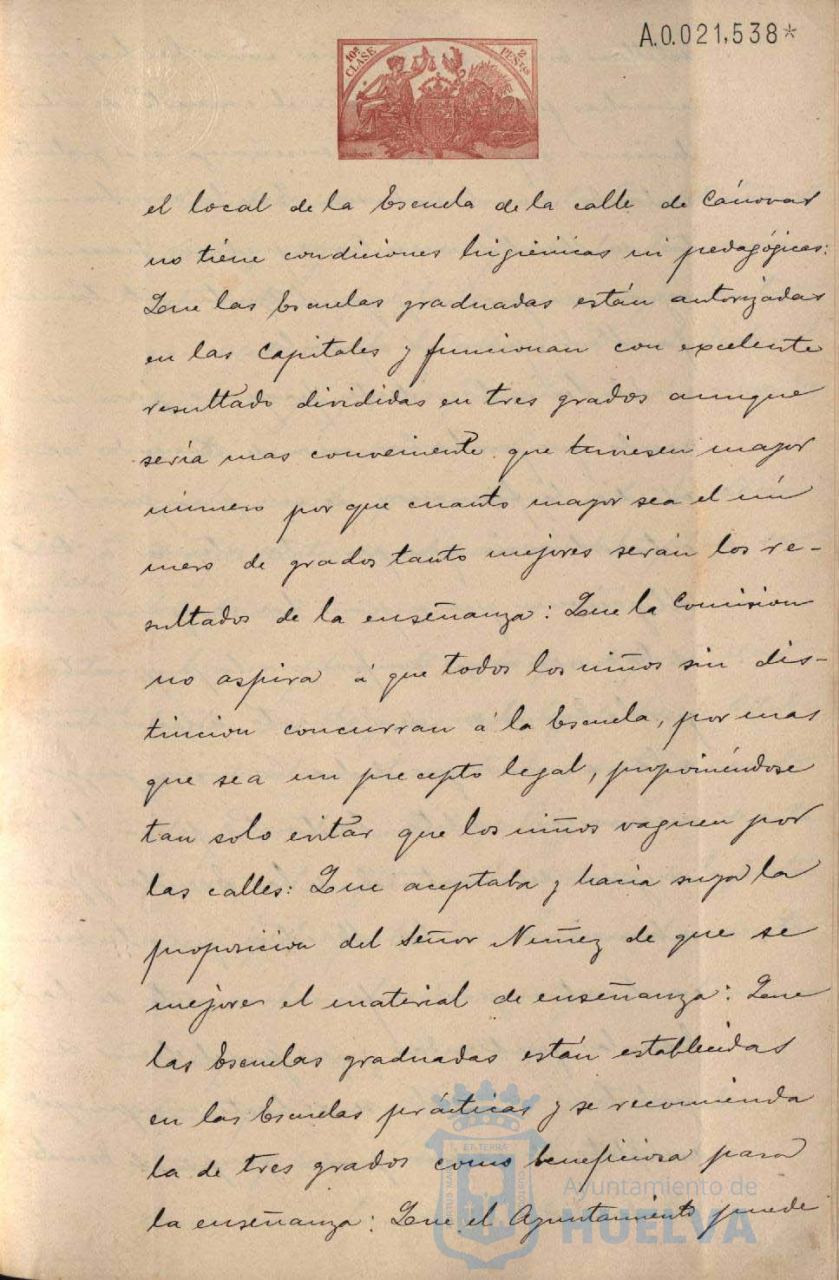 A.0.021,538*
10ª CLASE 2 PESETAS
el local de la Escuela de la calle de Cánovas
no tiene condiciones higiénicas ni pedagógicas:
Que las Escuelas graduadas están autorizadas
en las Capitales y funcionan con excelente
resultado divididas en tres grados aunque
sería mas conveniente que tuviesen mayor
número por que cuanto mayor sea el nú
mero de grados tanto mejores serán los re-
sultados de la enseñanza: Que la Comision
no aspira á que todos los niños sin dis-
tincion concurran á la Escuela, por mas
que sea un precepto legal, proponiéndose
tan solo evitar que los niños vaguen por
las calles: Que aceptaba y hacia suya la
proposicion del Señor Nuñez de que se
mejore el material de enseñanza: Que
las Escuelas graduadas están establecidas
en las Escuelas prácticas y se recomienda
la de tres grados como beneficiosa para
la enseñanza: Que el Ayuntamiento puede
Ayuntamiento de
HUELVA